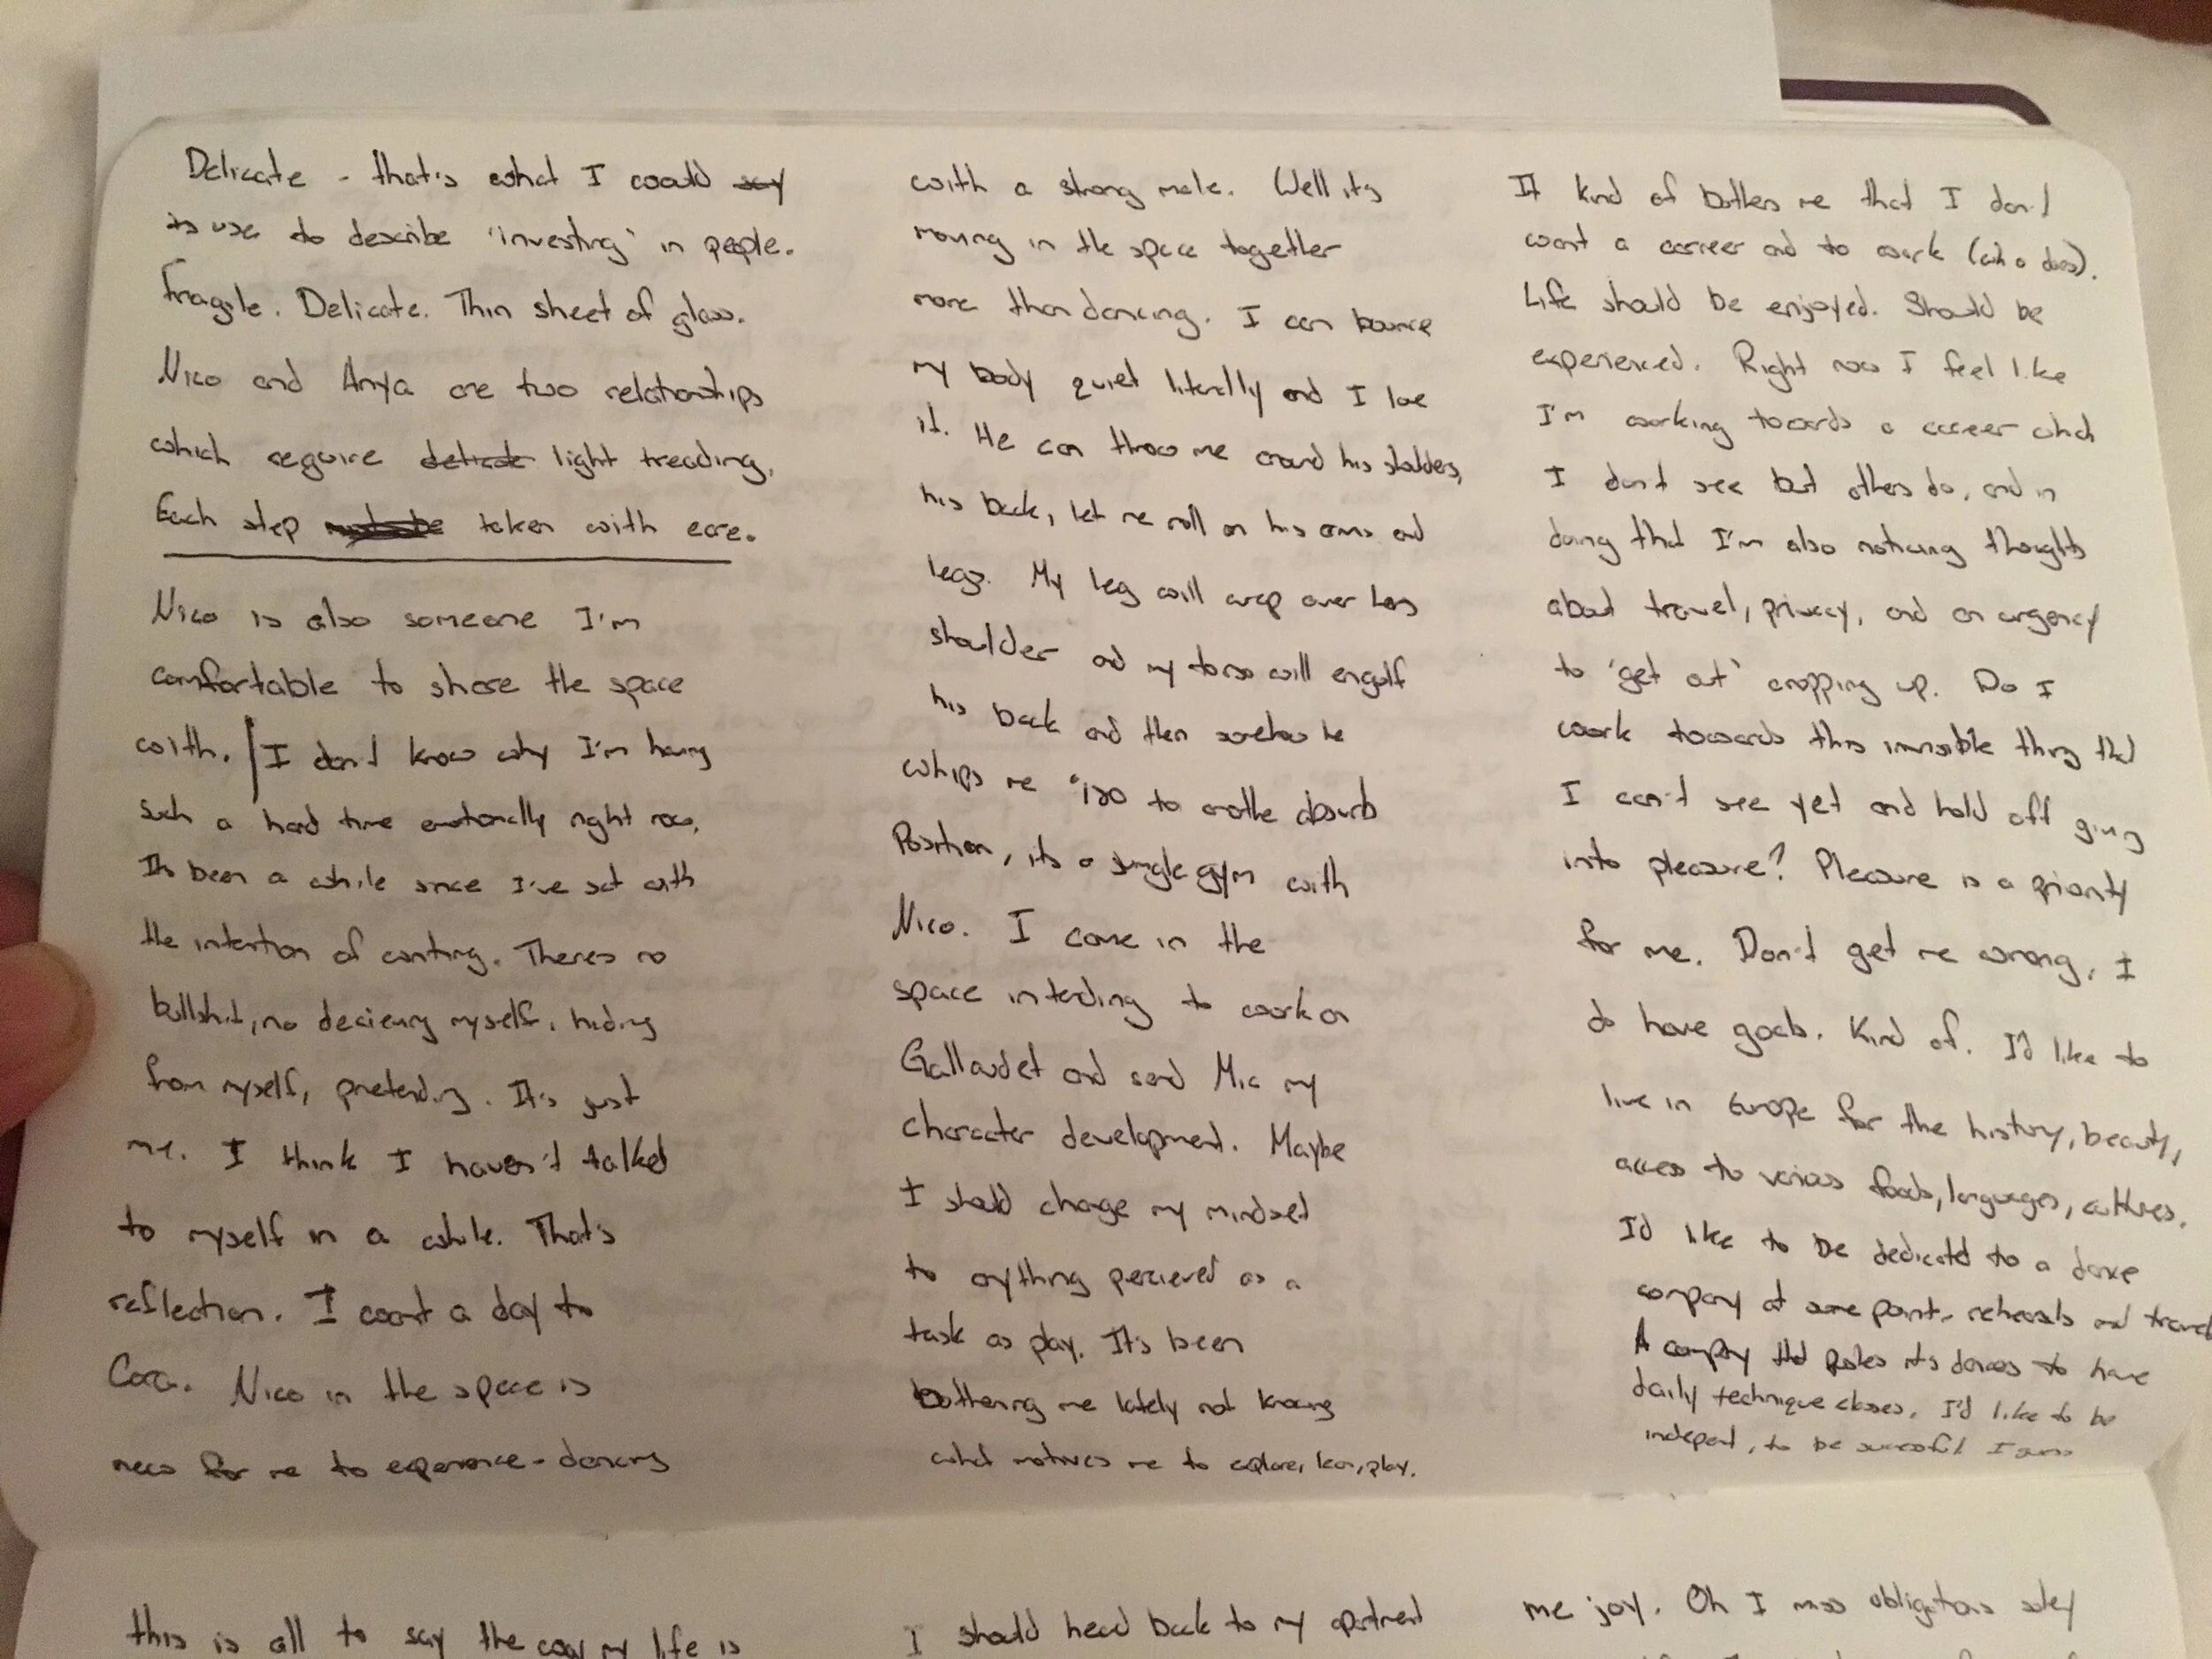 Delicate - that's what I would say
is use to describe 'investing' in people.
Fragile. Delicate. Thin sheet of glass.
Nico and Anya are two relationships
which require delicate light treading.
Each step must be taken with care.
Nico is also someone I'm
comfortable to share the space
with. I don't know why I'm having
such a hard time emotionally right now.
Its been a while since I've sat with
the intention of writing. Theres no
bullshit, no decieving myself, hiding
from myself, pretending. It's just
me. I think I haven't talked
to myself in a while. That's
reflection. I want a day to
Nico in the space is
new for me to experience - dancing
with a strong male. Well its
moving in the space together
more than dancing. I can bounce
my body quiet literally and I love
it. He can throw me around his shoulders,
his back, let me roll on his arms and
legs. My leg will wrap over his
shoulder and my torso will engulf
his back and then somehow he
whips me to another absurb
Position, its a jungle gym with
Nico. I come in the
space intending to work on
Gallaudet and send Mic my
character development. Maybe
I should change my mindset
to anything percieved as a
task as play. It's been
bothering me lately not knowing
what motives me to explore, learn, play.
It kind of bothers me that I don't
want a career and to work (who does).
Life should be enjoyed. Should be
experienced. Right now I feel like
I'm working towards a career which
I don't see but others do, and in
doing that I'm also noticing thoughts
about travel, privacy, and an urgency
to 'get out' cropping up. Do I
work towards this invisible thing that
I can't see yet and hold off giving
into pleasure? Pleasure is a priority
for me. Don't get me wrong, I
do have goals. Kind of. I'd like to
live in Europe for the history, beauty,
access to various foods, languages, cultures.
I'd like to be dedicated to a dance
company at some point - rehearsals and travel
A company that its dancers to have
daily technique classes. I'd like to be
indepent, to be succesful I guess
this is all to say the way my life is
I should head back to my apartment
me joy. Oh I miss obligations